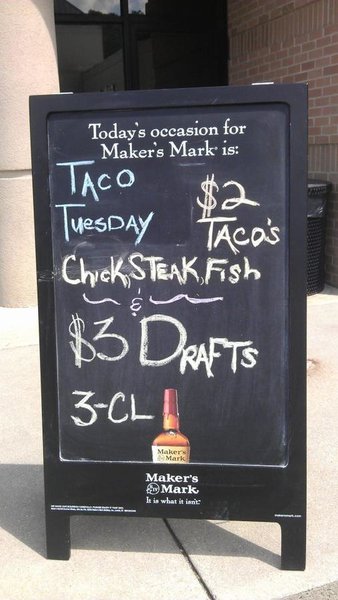 Today's occasion for
Maker's Mark® is:
TACO
TUESDAY
$2
TACO'S
Chick, STEAK, Fish
&
$3 DRAFTS
3-CL
Maker's
Mark
Maker's
Mark
It is what it isn't.™
makersmark.com